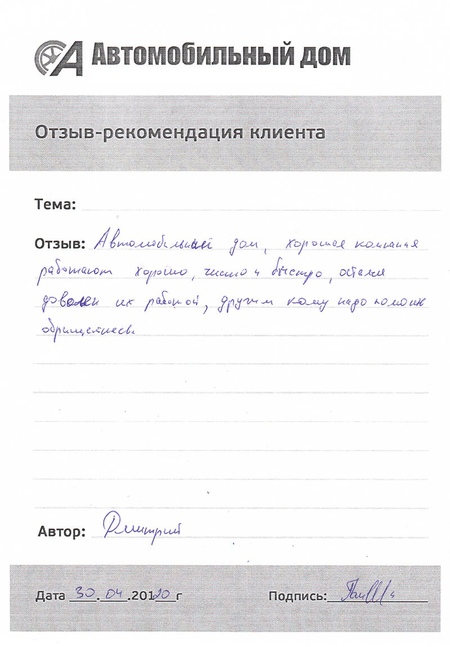 Автомобильный дом
Отзыв-рекомендация клиента
Тема:
Отзыв: Автомобильный дом, хорошая компания
работают хорошо, чисто и быстро, остался
доволен их работой, другим кому надо
обращетнесь
Автор: Дмитрий
Дата 30.04.20120г Подпись: